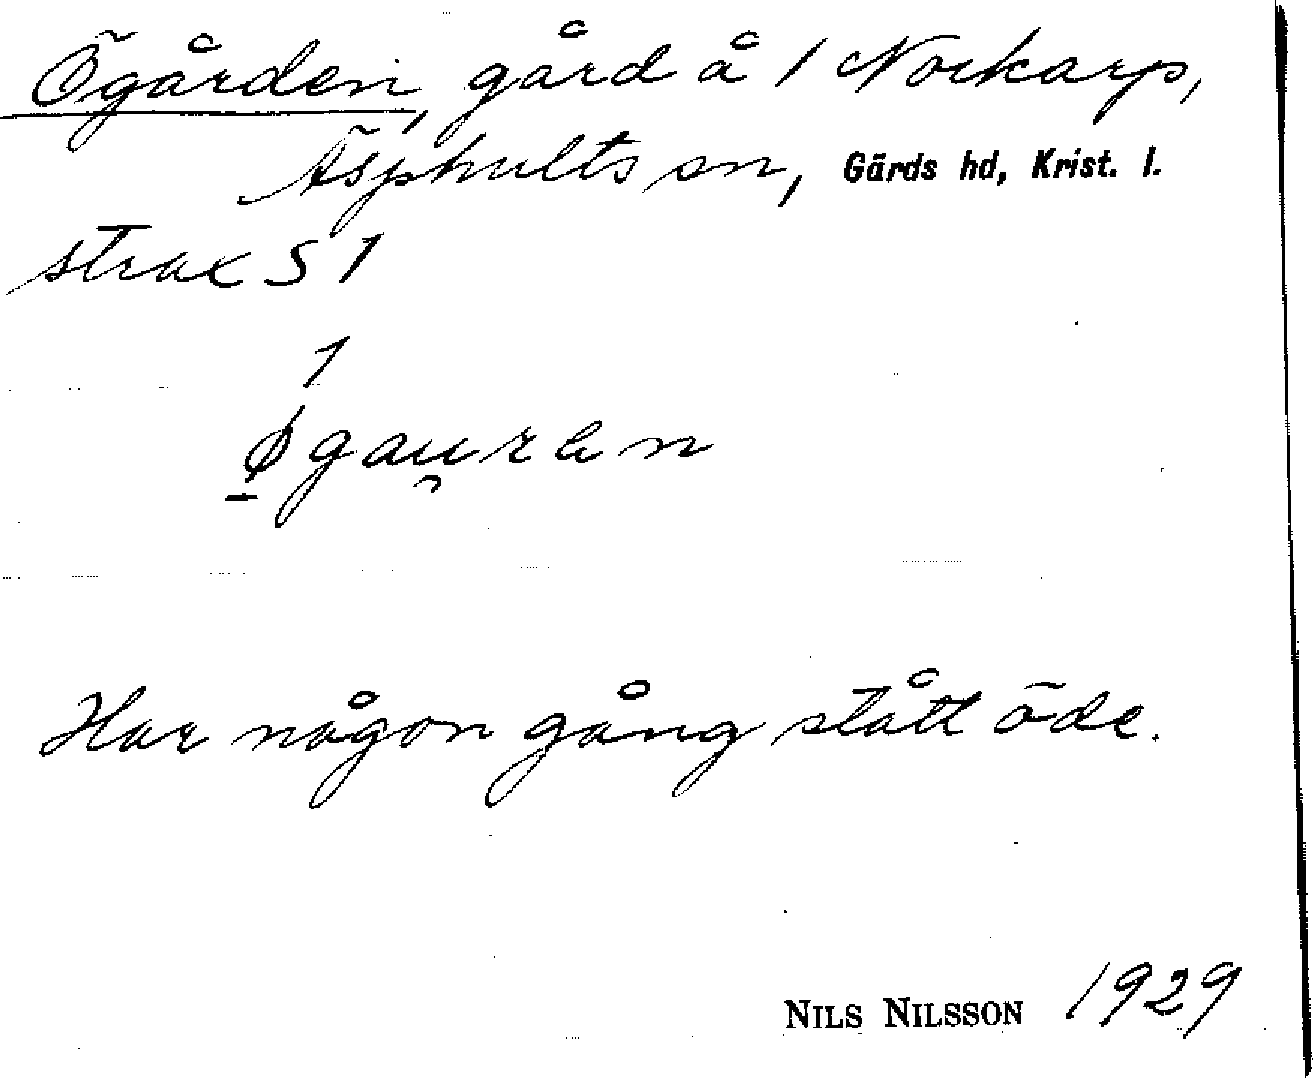 Ögården, gård å 1 Norkarp,
Äsphults sn, Gärds hd, Krist. l.
strax S 1
1
øgau̯ren
Har någon gång stått öde.
NILS NILSSON 1929